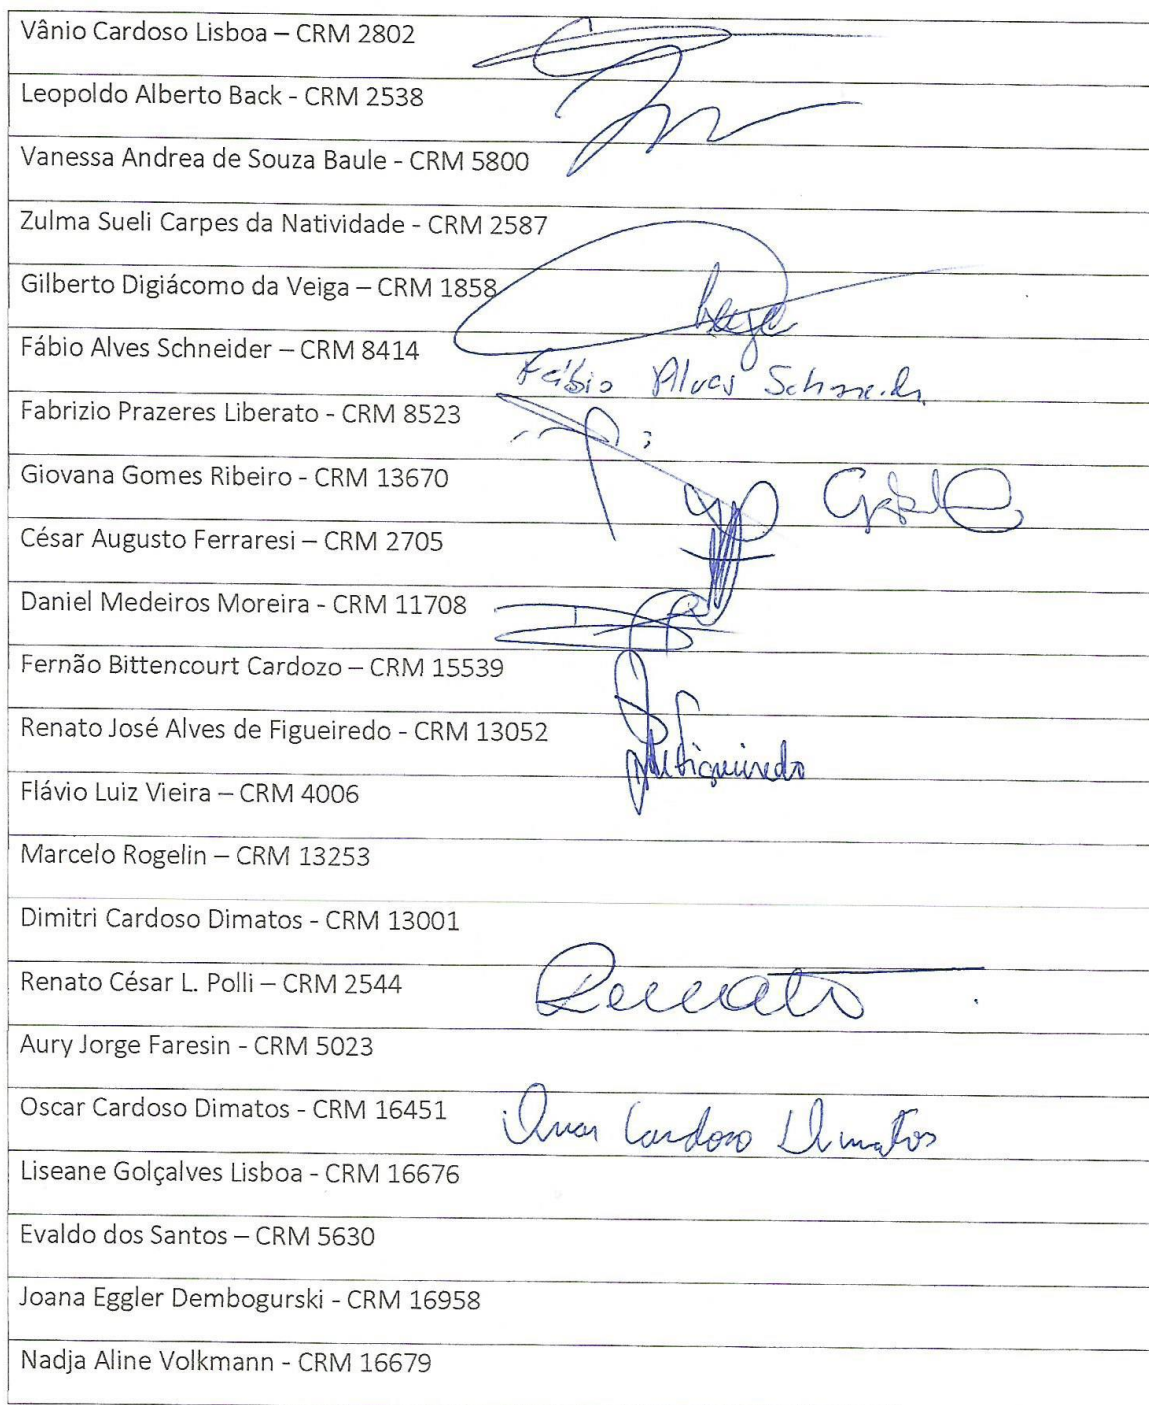 Vânio Cardoso Lisboa – CRM 2802
Leopoldo Alberto Back - CRM 2538
Vanessa Andrea de Souza Baule - CRM 5800
Zulma Sueli Carpes da Natividade - CRM 2587
Gilberto Digiácomo da Veiga – CRM 1858
Fábio Alves Schneider – CRM 8414
Fábio Alves Schneider
Fabrizio Prazeres Liberato - CRM 8523
Giovana Gomes Ribeiro - CRM 13670
César Augusto Ferraresi – CRM 2705
Daniel Medeiros Moreira - CRM 11708
Fernão Bittencourt Cardozo – CRM 15539
Renato José Alves de Figueiredo - CRM 13052
Figueiredo
Flávio Luiz Vieira – CRM 4006
Marcelo Rogelin – CRM 13253
Dimitri Cardoso Dimatos - CRM 13001
Renato César L. Polli – CRM 2544 Renato
Aury Jorge Faresin - CRM 5023
Oscar Cardoso Dimatos - CRM 16451 Oscar Cardoso Dimatos
Liseane Golçalves Lisboa - CRM 16676
Evaldo dos Santos – CRM 5630
Joana Eggler Dembogurski - CRM 16958
Nadja Aline Volkmann - CRM 16679